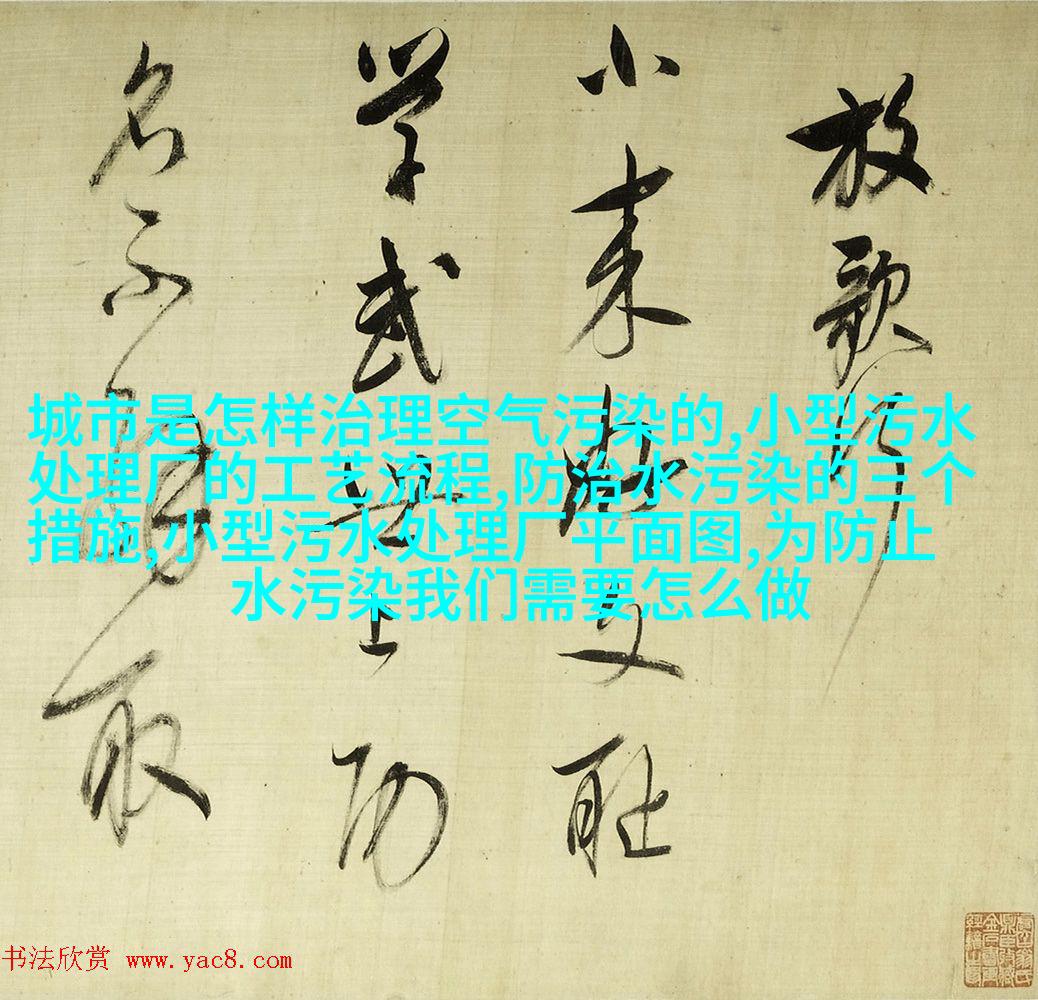 放歌行
小来好文耻
学武世上功
名不解取
城市是怎样治理空气污染的,小型污水
处理厂的工艺流程,防治水污染的三个
措施,小型污水处理厂平面图,为防止
水污染我们需要怎么做
书法欣赏 www.yac8.com